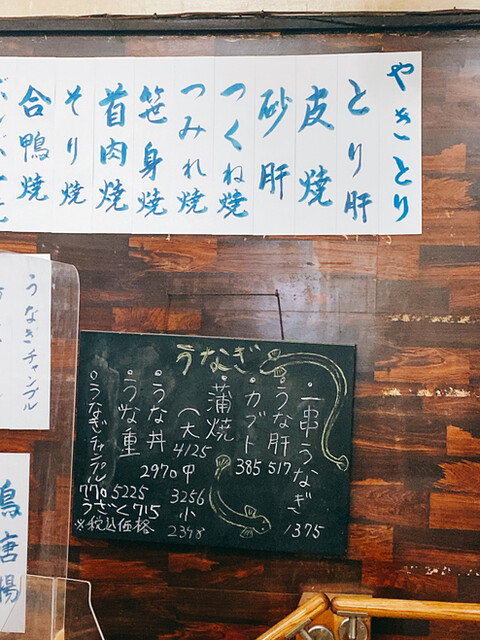 やきとり
とり肝
皮焼
砂肝
つくね焼
つみれ焼
笹身焼
首肉焼
そり焼
合鴨焼
うなぎチャンプル
うなぎ
・一串うなぎ
1375
・うな肝
517
・カブト
385
・蒲焼
(大
4125
中
3256
小
2398
・うな丼
2970
・うな重
5225
・うなぎチャンプル
770
うざく715
※税込価格
鴨唐揚